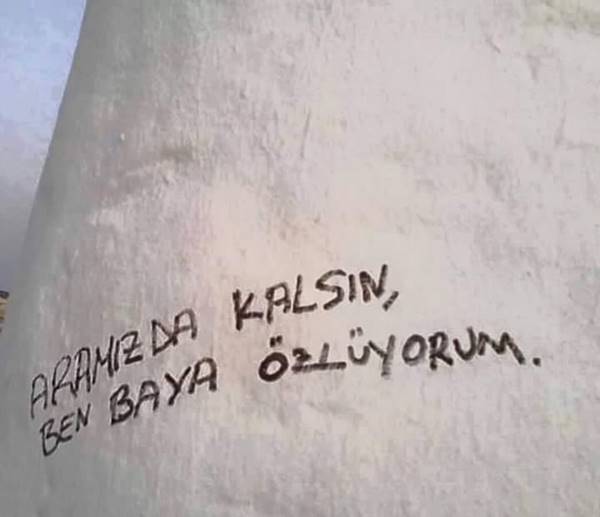 ARAMIZDA KALSIN,
BEN BAYA ÖZLÜYORUM.